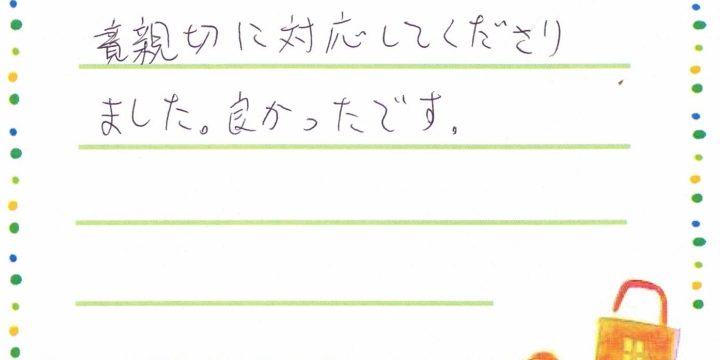 親切に対応してくださり
ました。良かったです。